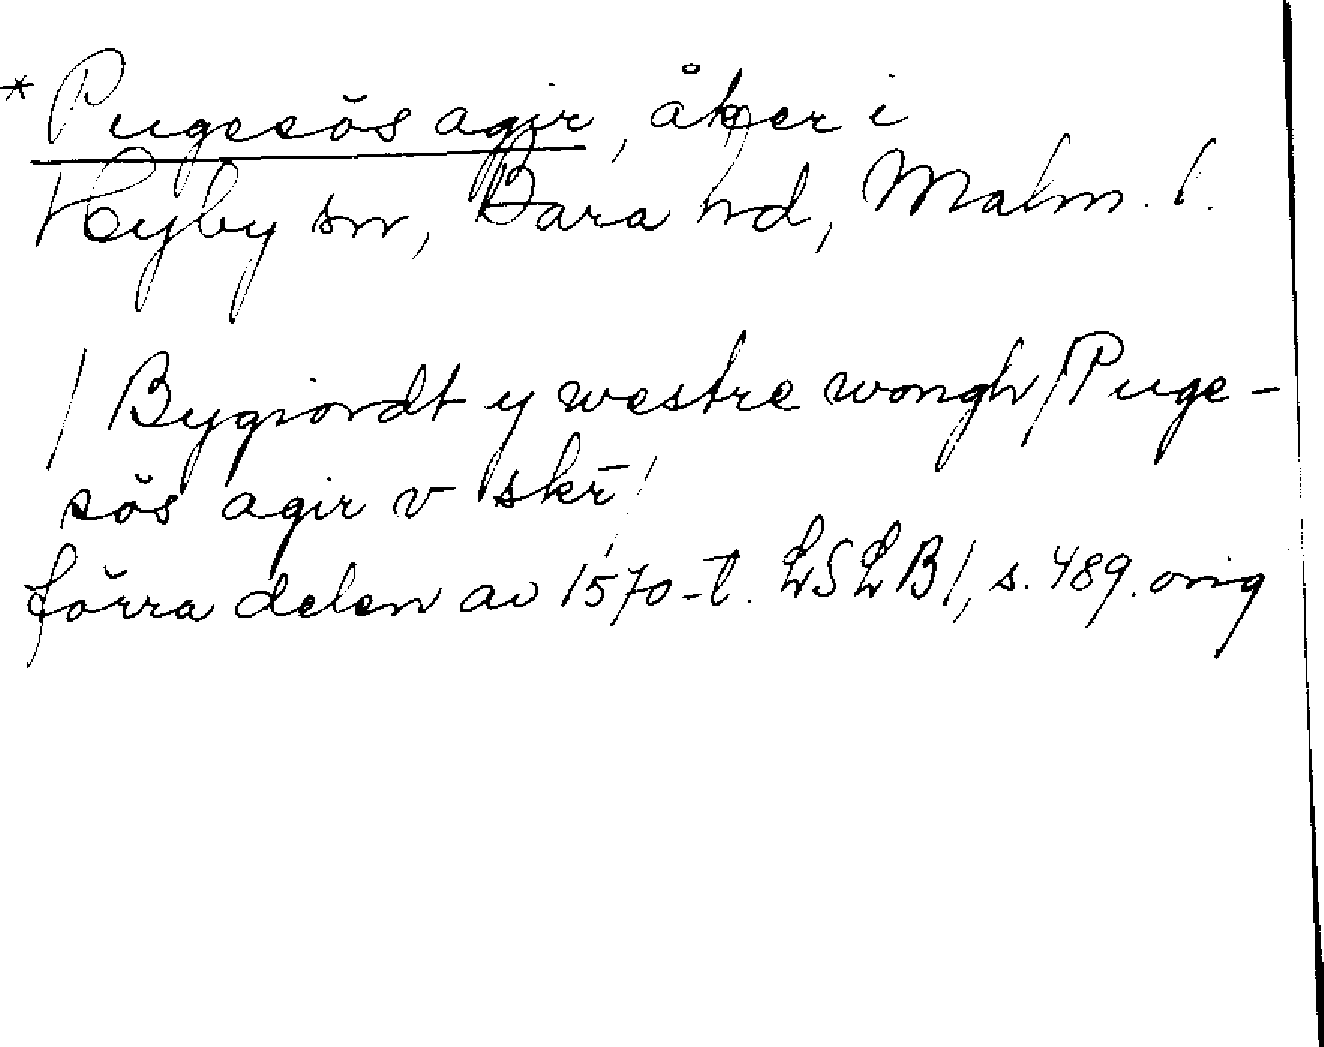 * Pugesös agir, åker i
Hyby sn, Bara hd, Malm. l.
/ Bygiordt y westre wongh / Puge-
sös agir v skr̄ /
förra delen av 1570-t. LSLB 1, s. 489. orig